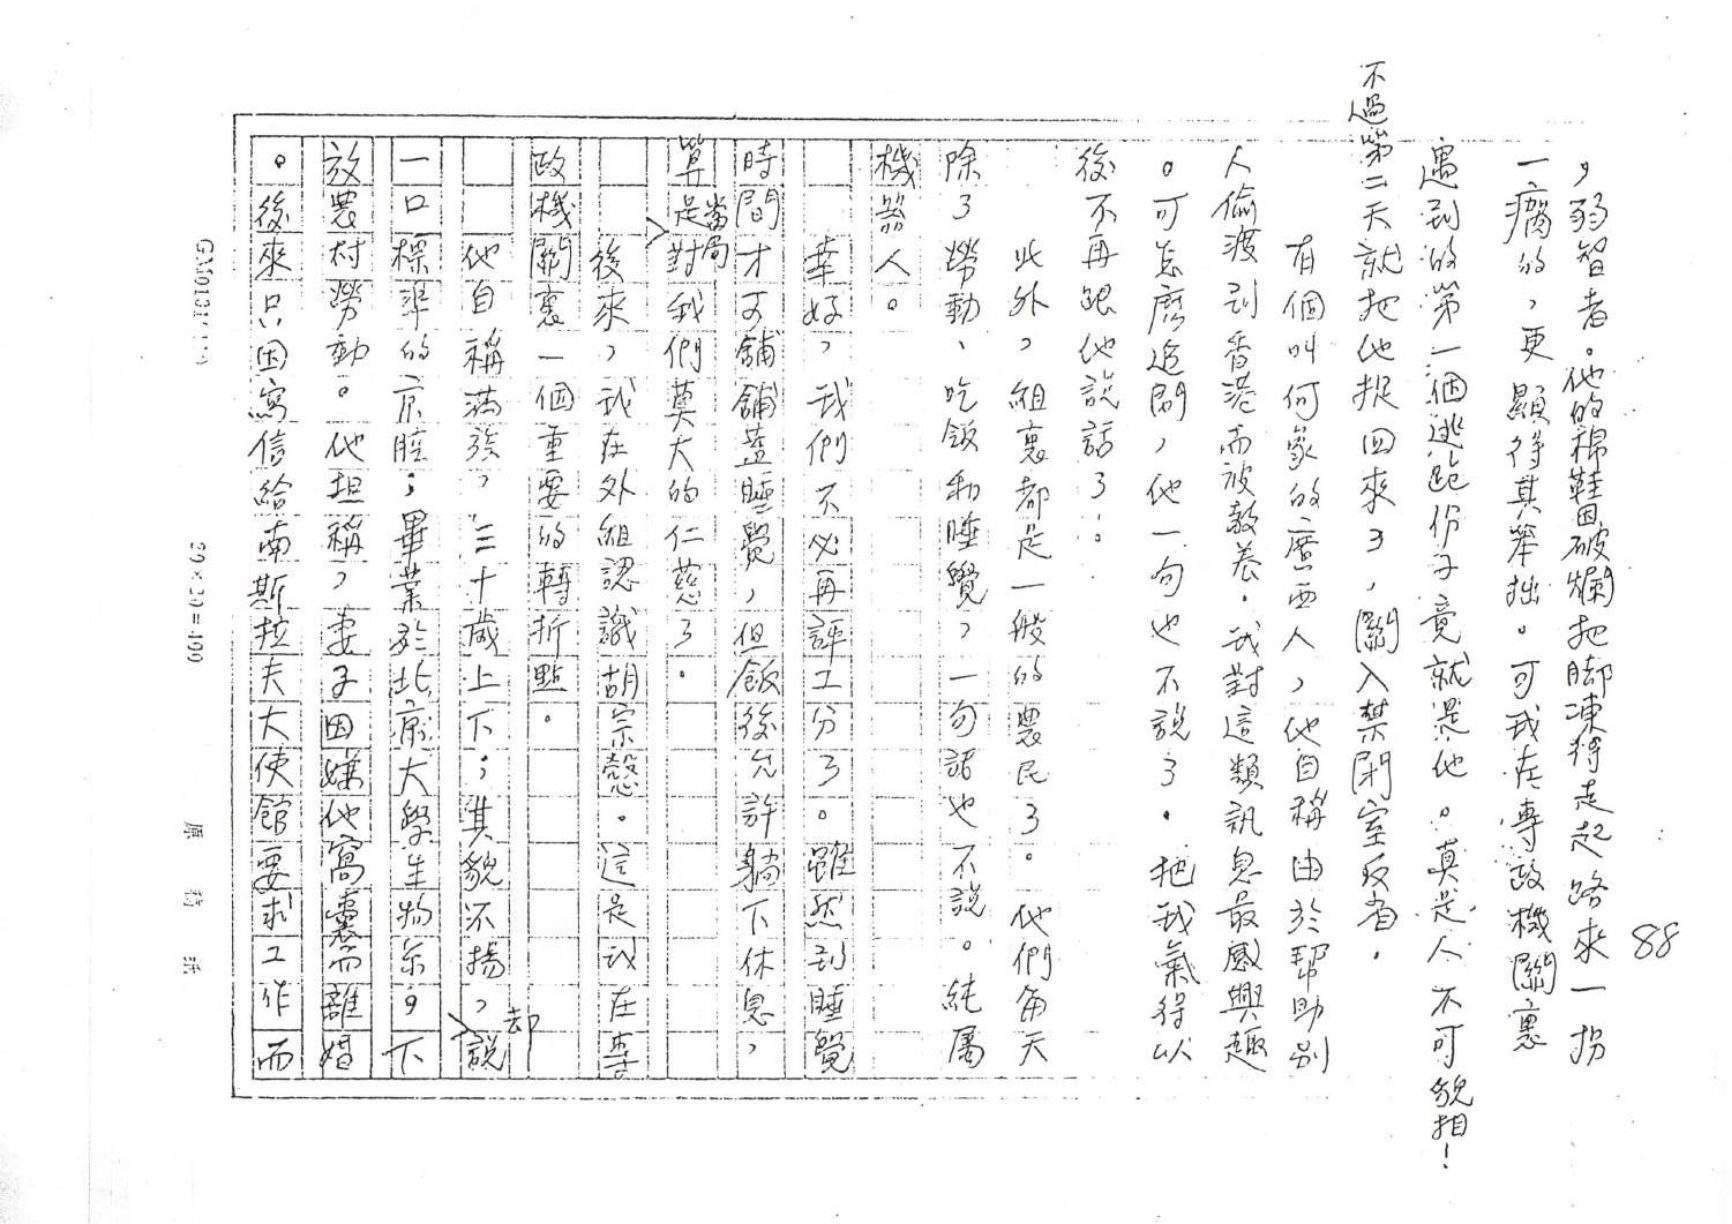 88
，弱智者。他的棉鞋因破爛把脚凍得走起路來一拐
一瘸的，更顯得其笨拙。可我在專政機關裏
遇到的第一個逃跑份子竟就是他。真是人不可貌相！
不過第二天就把他捉回來了，關入禁閉室反省．
有個叫何家的廣西人，他自稱由於帮助别
人偷渡到香港而被教养．我對這類訊息最感興趣
。可怎麽追問，他一句也不說了．把我氣得以
後不再跟他說話了．
此外，組裏都是一般的農民了。他們每天
除了勞動、吃飯和睡覺，一句話也不説。純屬
機器人。
幸好，我們不必再評工分了。雖然到睡覺
時間才可舖舖蓋睡覺，但飯後允許躺下休息，
算是當局對我們莫大的仁慈了．
後來，我在外組認識胡宗愨。這是我在專
政機關裏一個重要的轉折點。
他自稱滿族，三十歲上下；其貌不揚，却説
一口標準的京腔；畢業於北京大學生物系，下
放農村勞動。他坦稱，妻子因嫌他窩囊而離婚
。後來只因寫信給南斯拉夫大使館要求工作而
20×20=400
原稿紙